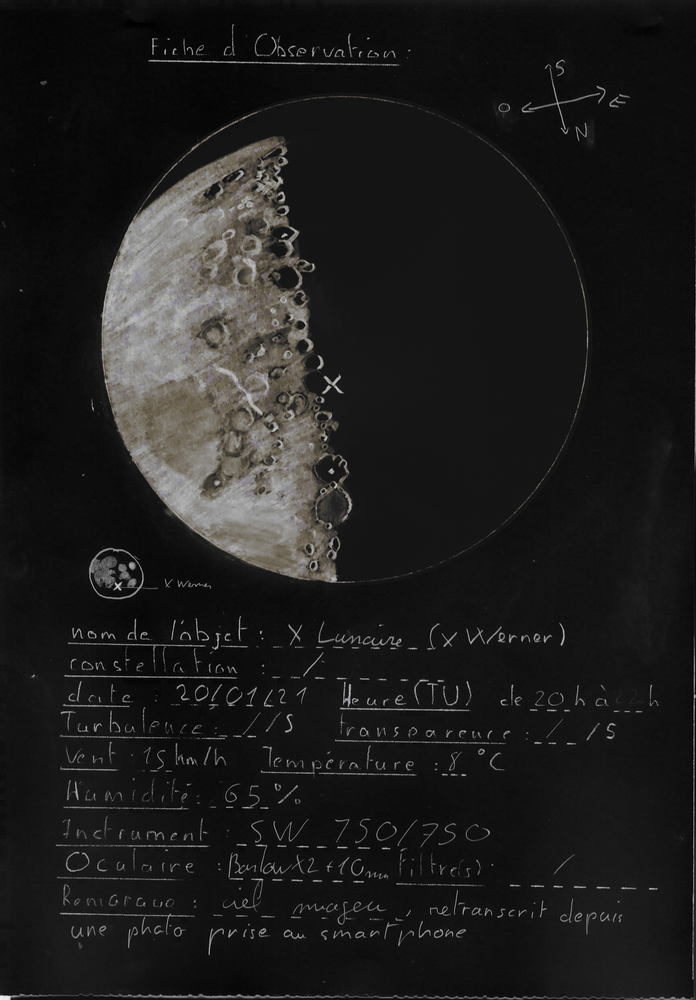 Fiche d'Observation:
S
O E
N
X Werner
nom de l'objet : X Lunaire (X Werner)
constellation : /
date : 20/01/21 Heure (TU) de 20 h à 22 h
Turbulence : / /5 transparence : / /5
Vent : 15 km/h Température : 8 °C
Humidité : 65 %
Instrument : SW 150/750
Oculaire : Barlow X2 + 10mm Filtre(s) : /
Remarque : ciel nuageux, retranscrit depuis
une photo prise au smartphone